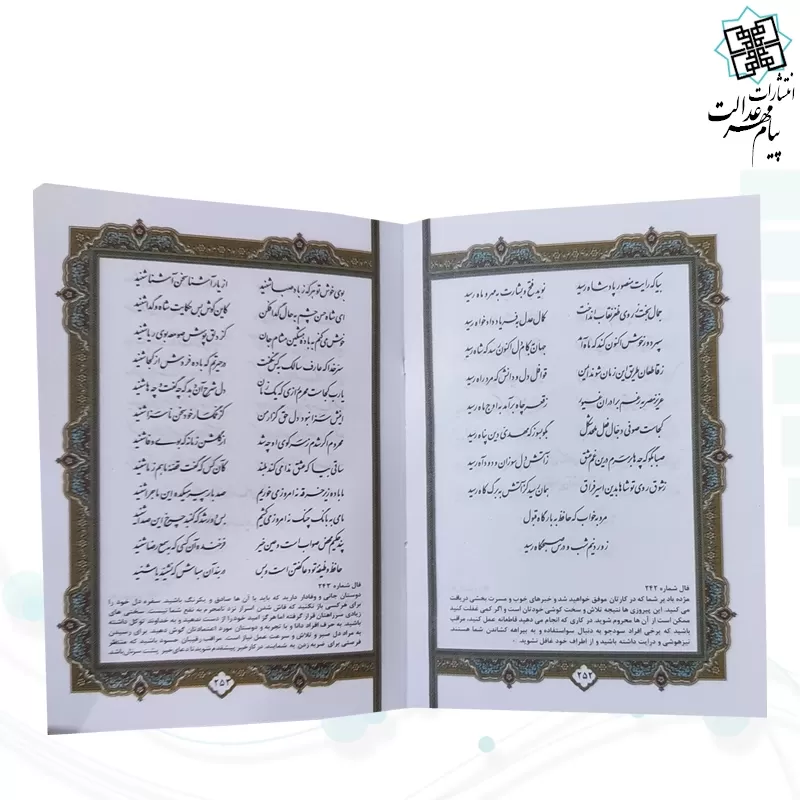 انتشارات
پیام مهر عدالت
بیا که رایت منصور پادشاه رسید نوید فتح و بشارت به مهر و ماه رسید
جمال بخت ز روی ظفر نقاب انداخت کمال عدل به فریاد دادخواه رسید
سپهر دور خوش اکنون کند که ماه آمد جهان به کام دل اکنون رسد که شاه رسید
ز قاطعان طریق این زمان شوند ایمن قوافل دل و دانش که مرد راه رسید
عزیز مصر به رغم برادران غیور ز قعر چاه برآمد به اوج ماه رسید
کجاست صوفی دجال فعل ملحد شکل بگو بسوز که مهدی دین پناه رسید
صبا بگو که چه‌ها بر سرم درین غم عشق ز آتش دل سوزان و دود آه رسید
ز شوق روی تو شاها بدین اسیر فراق همان رسید کز آتش به برگ کاه رسید
مرو به خواب که حافظ به بارگاه قبول
ز ورد نیم شب و درس صبحگاه رسید
فال شماره ۲۴۲
مژده باد بر شما که در کارتان موفق خواهید شد و خبرهای خوب و مسرت بخشی دریافت
می کنید. این پیروزی ها نتیجه تلاش و سخت کوشی خودتان است و اگر کمی غفلت کنید
ممکن است از آن ها محروم شوید. در کاری که انجام می دهید قاطعانه عمل کنید. مراقب
باشید که برخی افراد سودجو به دنبال سواستفاده و به بیراهه کشاندن شما هستند.
تیزهوشی و درایت داشته باشید و از اطراف خود غافل نشوید.
۲۵۲
بوی خوش تو هر که ز باد صبا شنید از یار آشنا سخن آشنا شنید
ای شاه حسن چشم به حال گدا فکن کاین گوش بس حکایت شاه و گدا شنید
خوش می‌کنم به باده مشکین مشام جان کز دلق پوش صومعه بوی ریا شنید
سر خدا که عارف سالک به کس نگفت در حیرتم که باده فروش از کجا شنید
یا رب کجاست محرم رازی که یک زمان دل شرح آن دهد که چه گفت و چه‌ها شنید
اینش سزا نبود دل حق گزار من کز غمگسار خود سخن ناسزا شنید
محروم اگر شدم ز سر کوی او چه شد از گلشن زمانه که بوی وفا شنید
ساقی بیا که عشق ندا می‌کند بلند کان کس که گفت قصه ما هم ز ما شنید
ما باده زیر خرقه نه امروز می‌خوریم صد بار پیر میکده این ماجرا شنید
ما می به بانگ چنگ نه امروز می‌کشیم بس دور شد که گنبد چرخ این صدا شنید
پند حکیم محض صواب است و عین خیر فرخنده آن کسی که به سمع رضا شنید
حافظ وظیفه تو دعا گفتن است و بس دربند آن مباش که نشنید یا شنید
فال شماره ۲۴۳
دوستان جانی و وفادار دارید که باید با آن ها صادق و یکرنگ باشید. سفره دل خود را
برای هرکسی باز نکنید که فاش شدن اسرار نزد نامحرم به نفع شما نیست. سختی های
زیادی سر راهتان قرار گرفته اما هرگز امید خود را از دست ندهید و به خداوند توکل داشته
باشید. به حرف افراد دانا و با تجربه و دوستان مورد اعتمادتان گوش دهید. برای رسیدن
به مراد دل صبر و تلاش و سرعت عمل نیاز است. مراقب رقیبان حسود باشید که منتظر
فرصتی برای ضربه زدن به شمایند. در کار خیر پیشقدم شوید تا دعای خیر پشت سرتان باشد.
۲۵۳